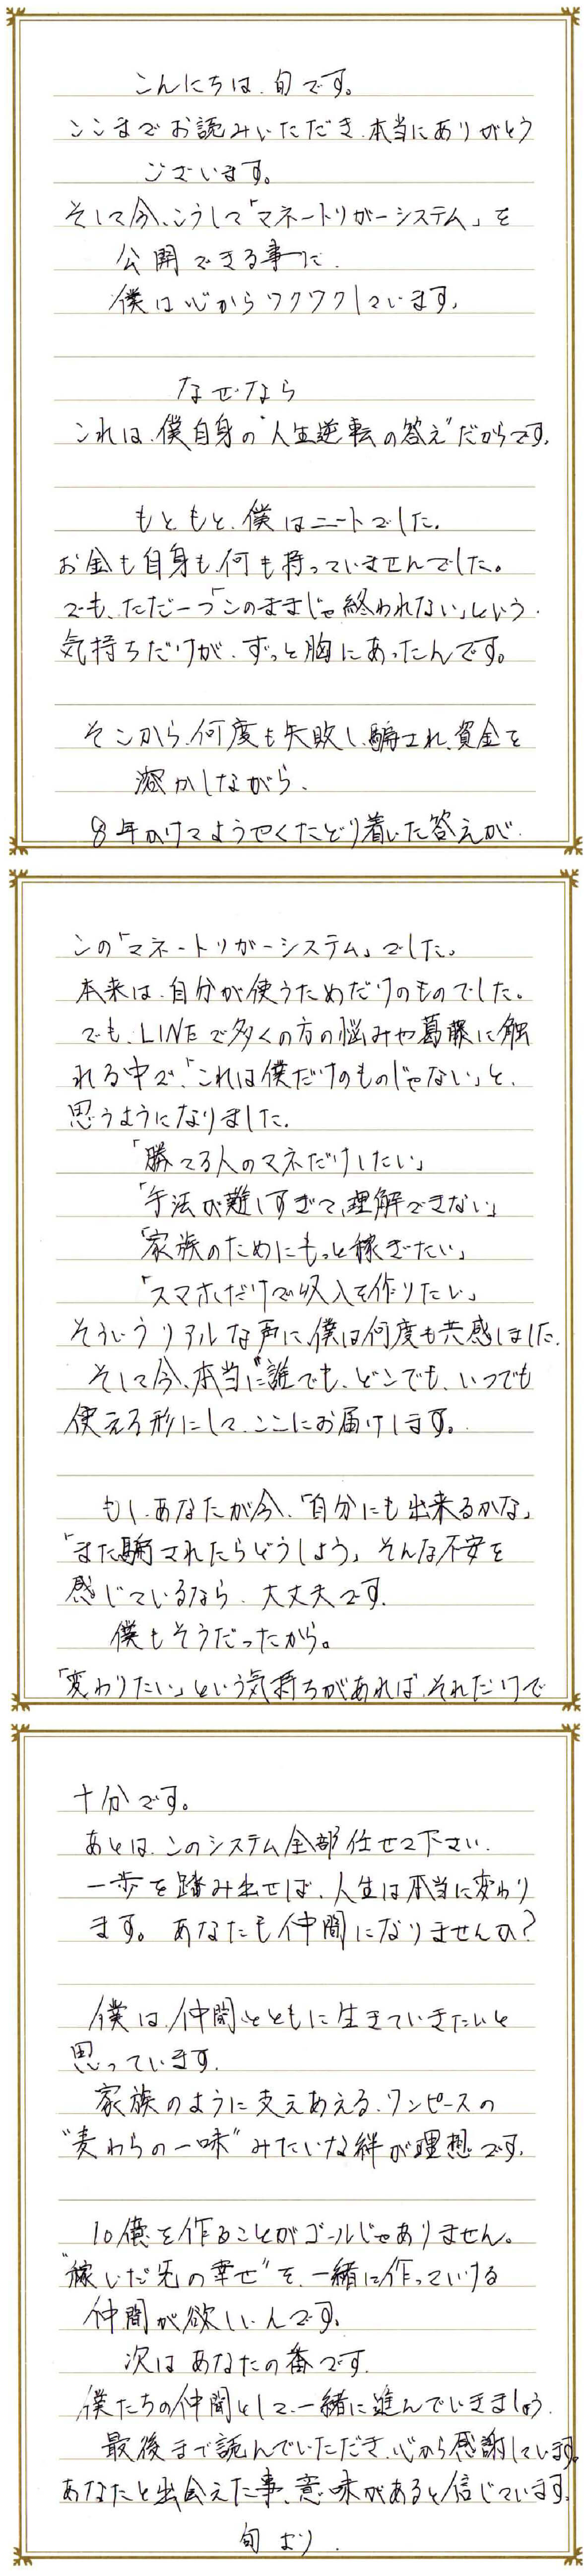 こんにちは、旬です。
ここまでお読みいただき、本当にありがとう
ございます。
そして今、こうして「マネートリガーシステム」を
公開できる事に、
僕は心からワクワクしています。
なぜなら
これは、僕自身の"人生逆転の答え"だからです。
もともと、僕はニートでした。
お金も自身も、何も持っていませんでした。
でも、ただ一つ「このままじゃ終われない」という、
気持ちだけが、ずっと胸にあったんです。
そこから、何度も失敗し、騙され、資金を
溶かしながら、
8年かけてようやくたどり着いた答えが、
この「マネートリガーシステム」でした。
本来は、自分が使うためだけのものでした。
でも、LINEで多くの方の悩みや葛藤に触
れる中で、「これは僕だけのものじゃない」と、
思うようになりました。
「勝てる人のマネだけしたい」
「手法が難しすぎて、理解できない」
「家族のためにもっと稼ぎたい」
「スマホだけで収入を作りたい」
そういうリアルな声に、僕は何度も共感しました。
そして今、本当に"誰でも、どこでも、いつでも
使える形にして、ここにお届けします。
もし、あなたが今、「自分にも出来るかな」
「また騙されたらどうしよう」そんな不安を
感じているなら、大丈夫です。
僕もそうだったから。
「変わりたい」という気持ちがあれば、それだけで
十分です。
あとは、このシステム全部任せて下さい。
一歩を踏み出せば、人生は本当に変わり
ます。あなたも仲間になりませんか?
僕は、仲間とともに生きていきたいと
思っています。
家族のように支えあえる、ワンピースの
"麦わらの一味"みたいな絆が理想です。
10億を作ることがゴールじゃありません。
"稼いだ先の幸せ"を、一緒に作っていける
仲間が欲しいんです。
次はあなたの番です。
僕たちの仲間として、一緒に進んでいきましょう。
最後まで読んでいただき、心から感謝しています。
あなたと出会えた事、意味があると信じています。
旬より。